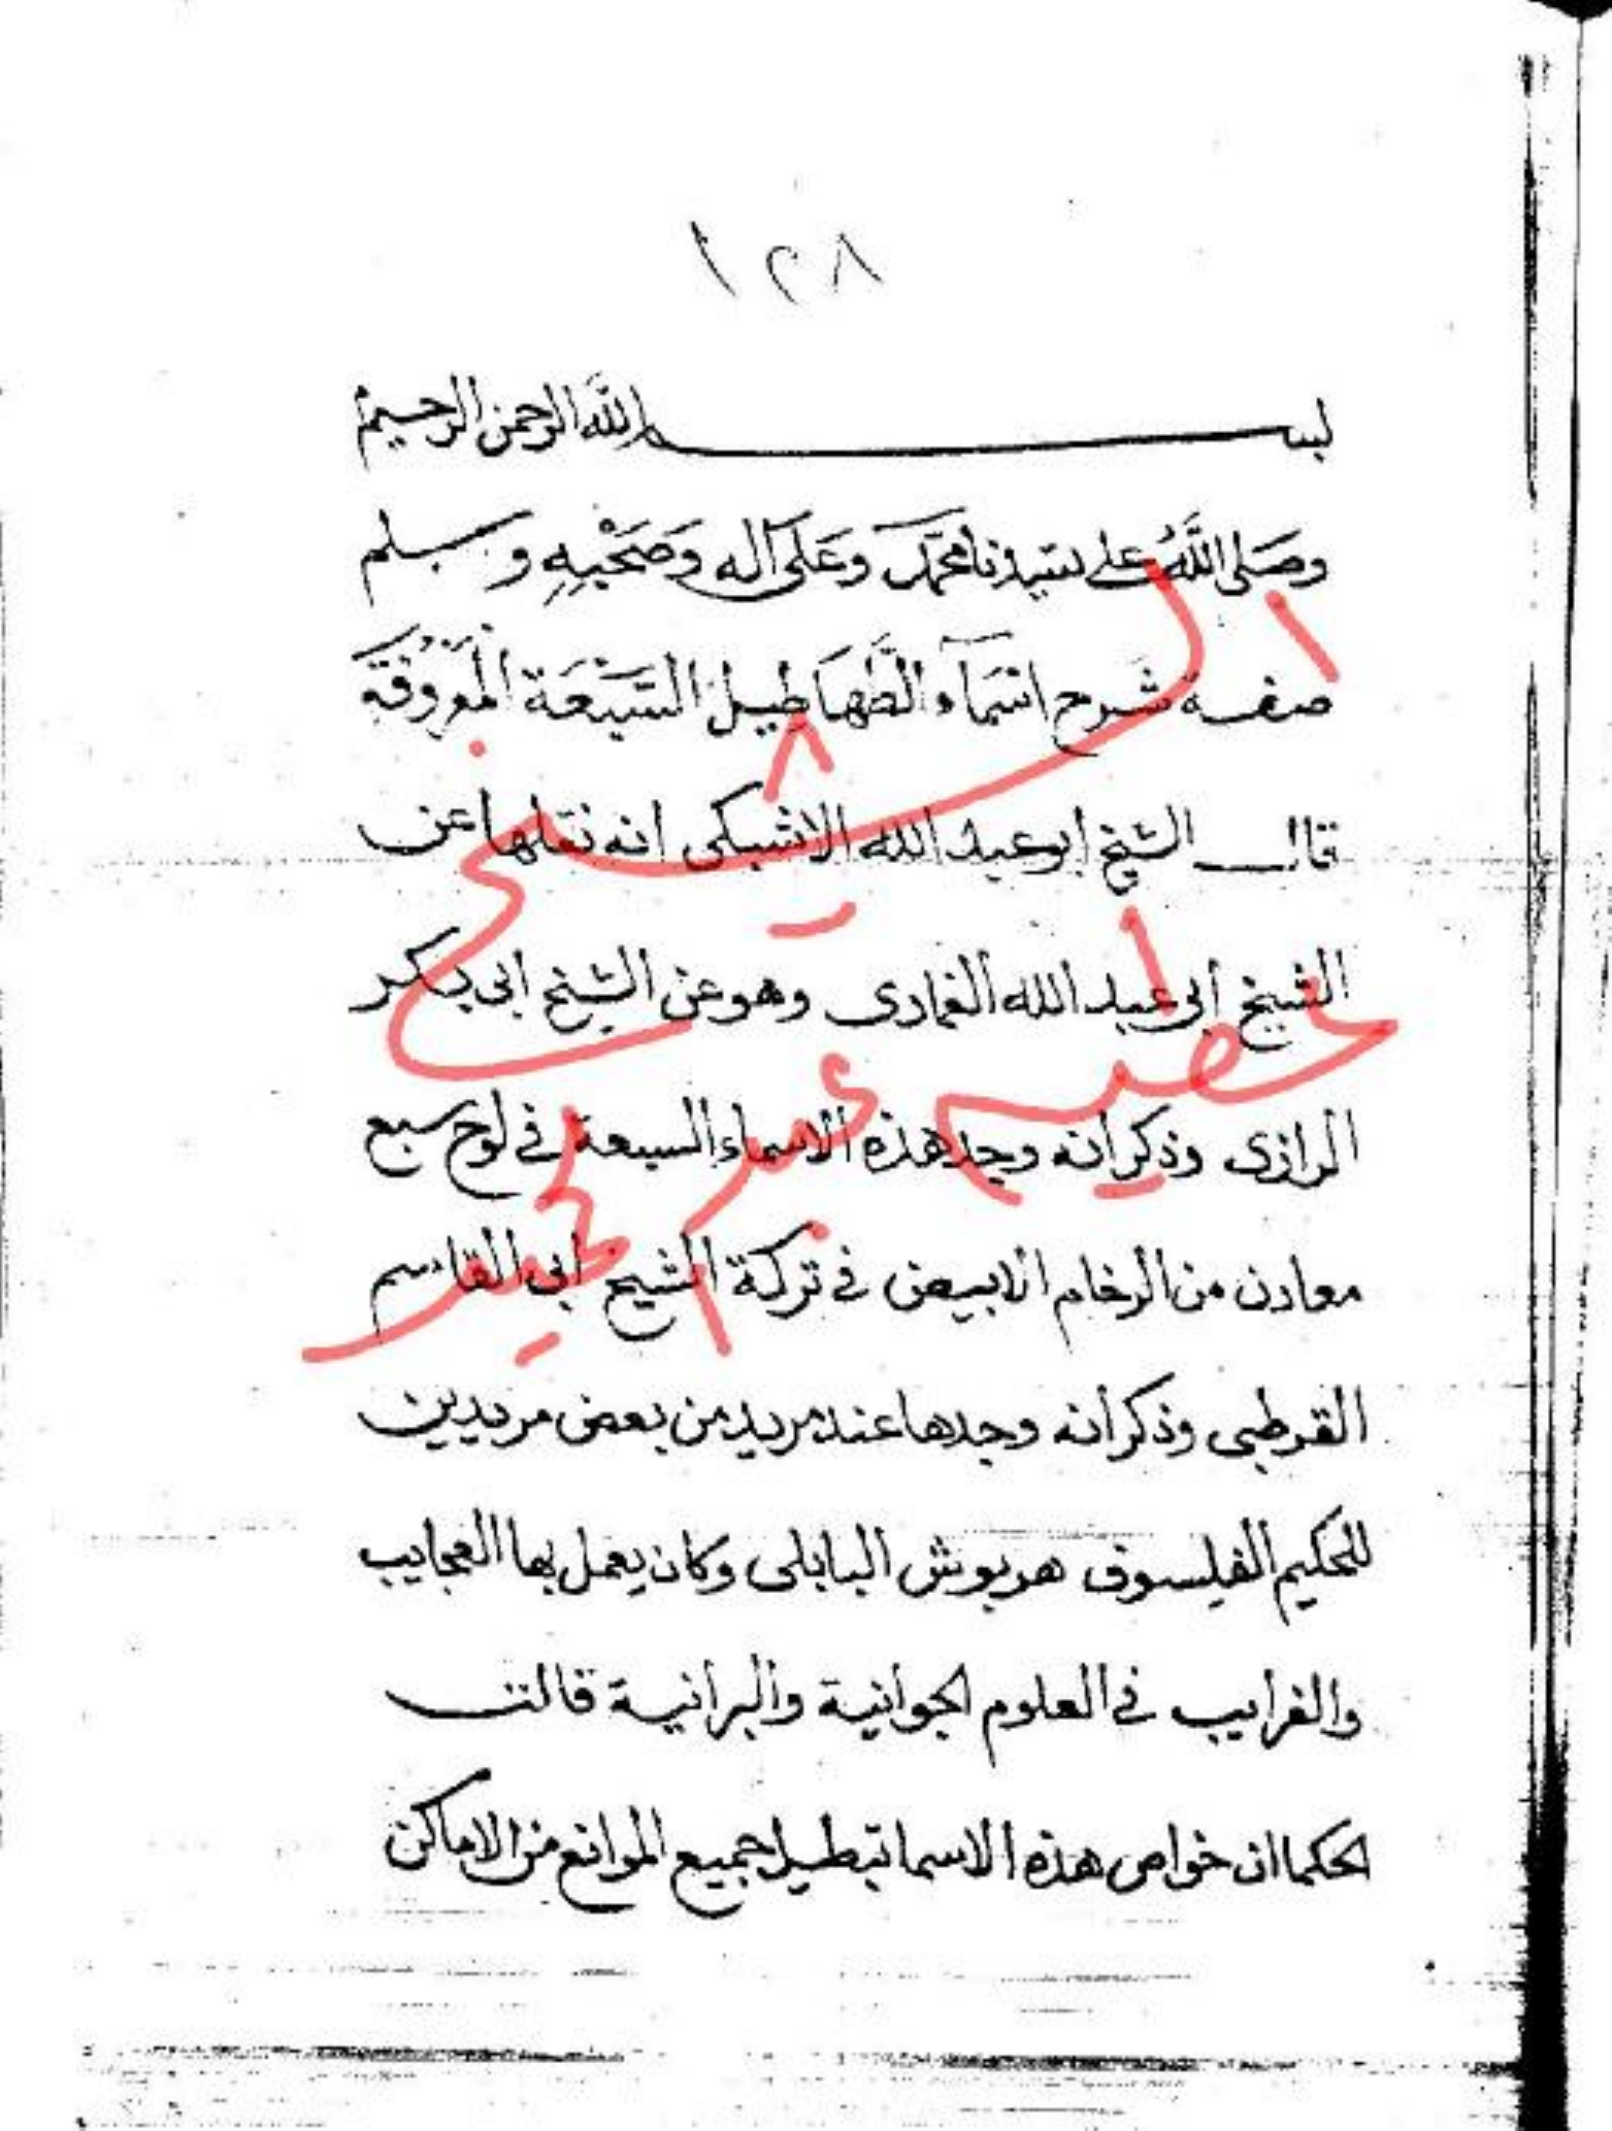 ١٢٨
بسم الله الرحمن الرحيم
وصَلى اللَّهُ على سَيدنا محمَّد وَعَلى آله وَصَحْبِهِ وسلم
صفة شَرح اسمَآء الطَّهَاطيل السَّبْعَة المَعرُوفَة
قال الشيخ ابو عبد الله الاشبكى انه نقلها عن
الشيخ أبى عبد الله الغمادى وهو عن الشيخ ابى بكر
الرازى وذكر انه وجد هذه الاسماء السبعة فى لوح سبع
معادن من الرخام الابيض فى تركة الشيخ ابى القاسم
القرطبى وذكر أنه وجدها عند مريد من بعض مريدين
للحكيم الفيلسوف هربوش البابلى وكان يعمل بها العجايب
والغرايب فى العلوم الجوانية والبرانية قالت
الحكما ان خواص هذه الاسما تبطيل جميع الموانع من الاماكن
الشيخ